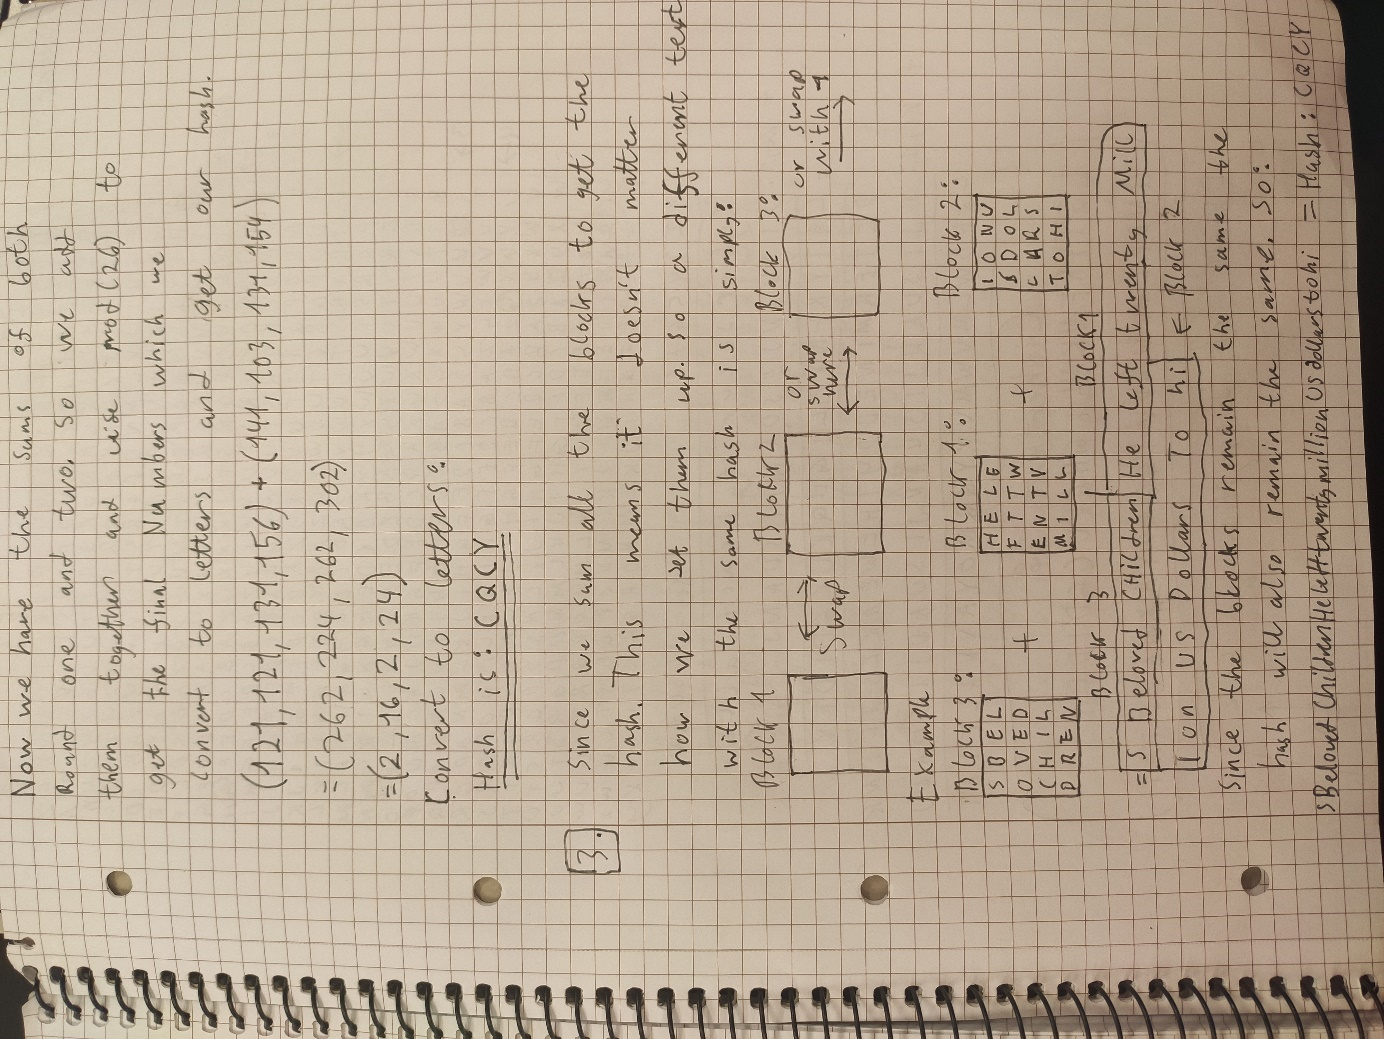 Now we have the sums of both
Round one and two. So we add
them together and use mod(26) to
get the final Numbers which we
convert to letters and get our hash.
(121,121,131,156) + (141,103,131,154)
=(262,224,262,302)
=(2,16,2,24)
Convert to letters:
Hash is: CQCY
3.
Since we sum all the blocks to get the
hash. This means it doesn't matter
how we set them up. so a different text
with the same hash is simply:
Block 1 Block 2 Block 3:
Swap or swap here or swap with 1
Example
Block 3: Block 1: Block 2:
SBEL HELE IONU
OVED + FTTW + SDOL
CHIL ENTY LARS
DREN MILL TOHI
Block 3 Block 1
= S Beloved CHildren He left twenty Mill
ion US Dollars To hi ← Block 2
Since the blocks remain the same the
hash will also remain the same. So:
sBelovedChildrenHelefttwentymillionUsdollarstohi = Hash: CQCY